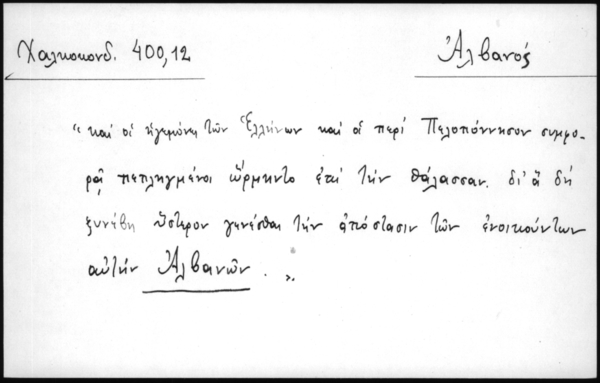 Χαλκοκονδ. 400,12
Ἀλβανός
" καὶ οἱ ἡγεμόνες τῶν Ἑλλήνων καὶ οἱ περὶ Πελοπόννησον συμφο-
ρᾷ πεπληγμένοι ὥρμηντο ἐπὶ τὴν θάλασσαν. δι' ἃ δὴ
ξυνέβη ὕστερον γενέσθαι τὴν ἀπόστασιν τῶν ἐνοικούντων
αὐτὴν Ἀλβανῶν . "